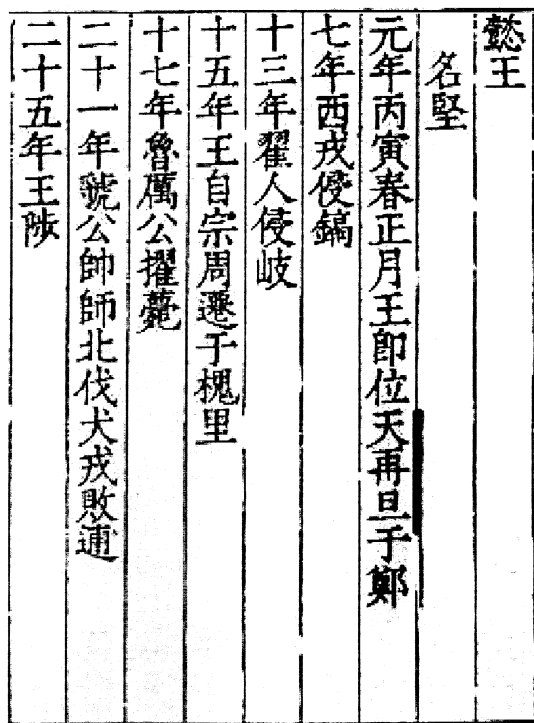 懿王
名堅
元年丙寅春正月王即位天再旦于鄭
七年西戎侵鎬
十三年翟人侵岐
十五年王自宗周遷于槐里
十七年魯厲公擢薨
二十一年虢公帥師北伐犬戎敗逋
二十五年王陟